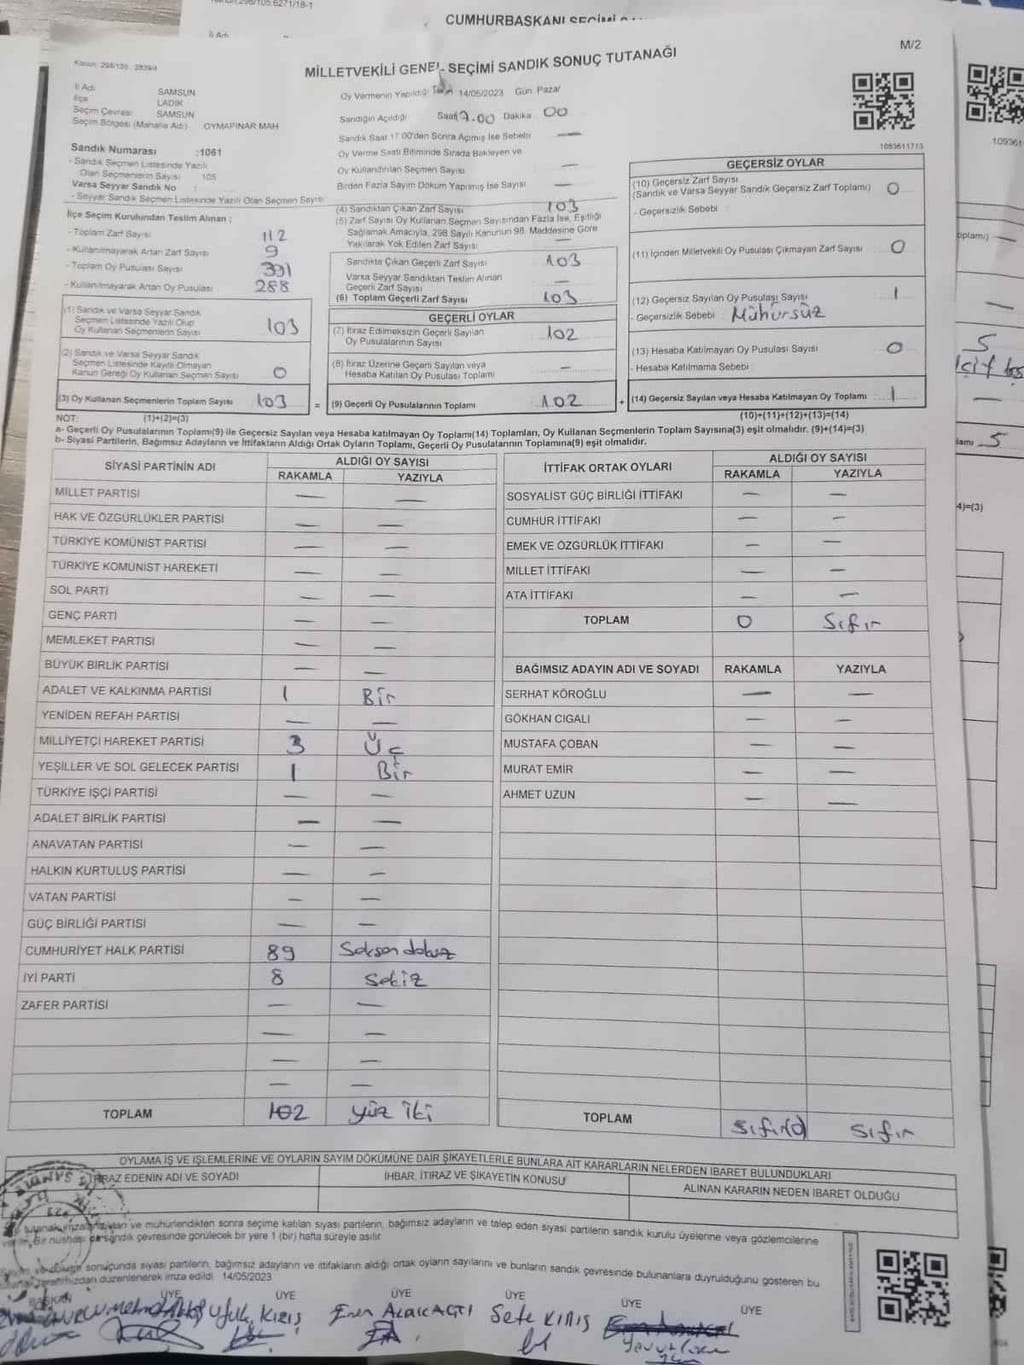 CUMHURBAŞKANI SEÇİMİ
M/2
MİLLETVEKİLİ GENEL SEÇİMİ SANDIK SONUÇ TUTANAĞI
İl Adı SAMSUN
İlçe LADİK
Seçim Çevresi SAMSUN
Seçim Bölgesi (Mahalle Adı) OYMAPINAR MAH
Sandık Numarası :1061
- Sandık Seçmen Listesinde Yazılı
Olan Seçmenlerin Sayısı 105
Varsa Seyyar Sandık No :
- Seyyar Sandık Seçmen Listesinde Yazılı Olan Seçmen Sayısı
İlçe Seçim Kurulundan Teslim Alınan ;
- Toplam Zarf Sayısı 112
- Kullanılmayarak Artan Zarf Sayısı 9
- Toplam Oy Pusulası Sayısı 391
- Kullanılmayarak Artan Oy Pusulası 288
(1) Sandık ve Varsa Seyyar Sandık
Seçmen Listesinde Yazılı Olup
Oy Kullanan Seçmenlerin Sayısı 103
(2) Sandık ve Varsa Seyyar Sandık
Seçmen Listesinde Kayıtlı Olmayan
Kanun Gereği Oy Kullanan Seçmen Sayısı 0
(3) Oy Kullanan Seçmenlerin Toplam Sayısı 103 =
(1)+(2)=(3)
Oy Vermenin Yapıldığı 14/05/2023 Gün Pazar
Sandığın Açıldığı Saat 17.00 Dakika 00
Sandık Saat 17:00'den Sonra Açılmış İse Sebebi —
Oy Verme Saati Bitiminde Sırada Bekleyen ve
Oy Kullandırılan Seçmen Sayısı —
Birden Fazla Sayım Döküm Yapılmış İse Sayısı —
(4) Sandıktan Çıkan Zarf Sayısı 103
(5) Zarf Sayısı Oy Kullanan Seçmen Sayısından Fazla İse, Eşitliği
Sağlamak Amacıyla, 298 Sayılı Kanunun 98. Maddesine Göre
Yakılarak Yok Edilen Zarf Sayısı —
Sandıkta Çıkan Geçerli Zarf Sayısı 103
Varsa Seyyar Sandıktan Teslim Alınan
Geçerli Zarf Sayısı —
(6) Toplam Geçerli Zarf Sayısı 103
GEÇERLİ OYLAR
(7) İtiraz Edilmeksizin Geçerli Sayılan
Oy Pusulalarının Sayısı 102
(8) İtiraz Üzerine Geçerli Sayılan veya
Hesaba Katılan Oy Pusulası Toplamı —
(9) Geçerli Oy Pusulalarının Toplamı 102 +
1083611713
GEÇERSİZ OYLAR
(10) Geçersiz Zarf Sayısı
(Sandık ve Varsa Seyyar Sandık Geçersiz Zarf Toplamı) 0
- Geçersizlik Sebebi
(11) İçinden Milletvekili Oy Pusulası Çıkmayan Zarf Sayısı 0
(12) Geçersiz Sayılan Oy Pusulası Sayısı 1
- Geçersizlik Sebebi Mühürsüz
(13) Hesaba Katılmayan Oy Pusulası Sayısı 0
- Hesaba Katılmama Sebebi
(14) Geçersiz Sayılan veya Hesaba Katılmayan Oy Toplamı 1
(10)+(11)+(12)+(13)=(14)
NOT:
a- Geçerli Oy Pusulalarının Toplamı(9) ile Geçersiz Sayılan veya Hesaba katılmayan Oy Toplamı(14) Toplamları, Oy Kullanan Seçmenlerin Toplam Sayısına(3) eşit olmalıdır. (9)+(14)=(3)
b- Siyasi Partilerin, Bağımsız Adayların ve İttifakların Aldığı Ortak Oyların Toplamı, Geçerli Oy Pusulalarının Toplamına(9) eşit olmalıdır.
SİYASİ PARTİNİN ADI ALDIĞI OY SAYISI
RAKAMLA YAZIYLA
MİLLET PARTİSİ — —
HAK VE ÖZGÜRLÜKLER PARTİSİ — —
TÜRKİYE KOMÜNİST PARTİSİ — —
TÜRKİYE KOMÜNİST HAREKETİ — —
SOL PARTİ — —
GENÇ PARTİ — —
MEMLEKET PARTİSİ — —
BÜYÜK BİRLİK PARTİSİ — —
ADALET VE KALKINMA PARTİSİ 1 Bir
YENİDEN REFAH PARTİSİ — —
MİLLİYETÇİ HAREKET PARTİSİ 3 Üç
YEŞİLLER VE SOL GELECEK PARTİSİ 1 Bir
TÜRKİYE İŞÇİ PARTİSİ — —
ADALET BİRLİK PARTİSİ — —
ANAVATAN PARTİSİ — —
HALKIN KURTULUŞ PARTİSİ — —
VATAN PARTİSİ — —
GÜÇ BİRLİĞİ PARTİSİ — —
CUMHURİYET HALK PARTİSİ 89 Seksen dokuz
İYİ PARTİ 8 Sekiz
ZAFER PARTİSİ — —
— —
— —
— —
TOPLAM 102 yüz iki
İTTİFAK ORTAK OYLARI ALDIĞI OY SAYISI
RAKAMLA YAZIYLA
SOSYALİST GÜÇ BİRLİĞİ İTTİFAKI — —
CUMHUR İTTİFAKI — —
EMEK VE ÖZGÜRLÜK İTTİFAKI — —
MİLLET İTTİFAKI — —
ATA İTTİFAKI — —
TOPLAM 0 Sıfır
BAĞIMSIZ ADAYIN ADI VE SOYADI RAKAMLA YAZIYLA
SERHAT KÖROĞLU — —
GÖKHAN CIGALI — —
MUSTAFA ÇOBAN — —
MURAT EMİR — —
AHMET UZUN — —
TOPLAM Sıfır(0) Sıfır
OYLAMA İŞ VE İŞLEMLERİNE VE OYLARIN SAYIM DÖKÜMÜNE DAİR ŞİKAYETLERLE BUNLARA AİT KARARLARIN NELERDEN İBARET BULUNDUKLARI
İTİRAZ EDENİN ADI VE SOYADI İHBAR, İTİRAZ VE ŞİKAYETİN KONUSU ALINAN KARARIN NEDEN İBARET OLDUĞU
ve mühürlendikten sonra seçime katılan siyasi partilerin, bağımsız adayların ve talep eden siyasi partilerin sandık kurulu üyelerine veya gözlemcilerine
Bir nüshası da sandık çevresinde görülecek bir yere 1 (bir) hafta süreyle asılır
sonucunda siyasi partilerin, bağımsız adayların ve ittifakların aldığı ortak oyların sayılarını ve bunların sandık çevresinde bulunanlara duyrulduğunu gösteren bu
tarafımızdan düzenlenerek imza edildi 14/05/2023
BAŞKAN ÜYE ÜYE ÜYE ÜYE ÜYE ÜYE